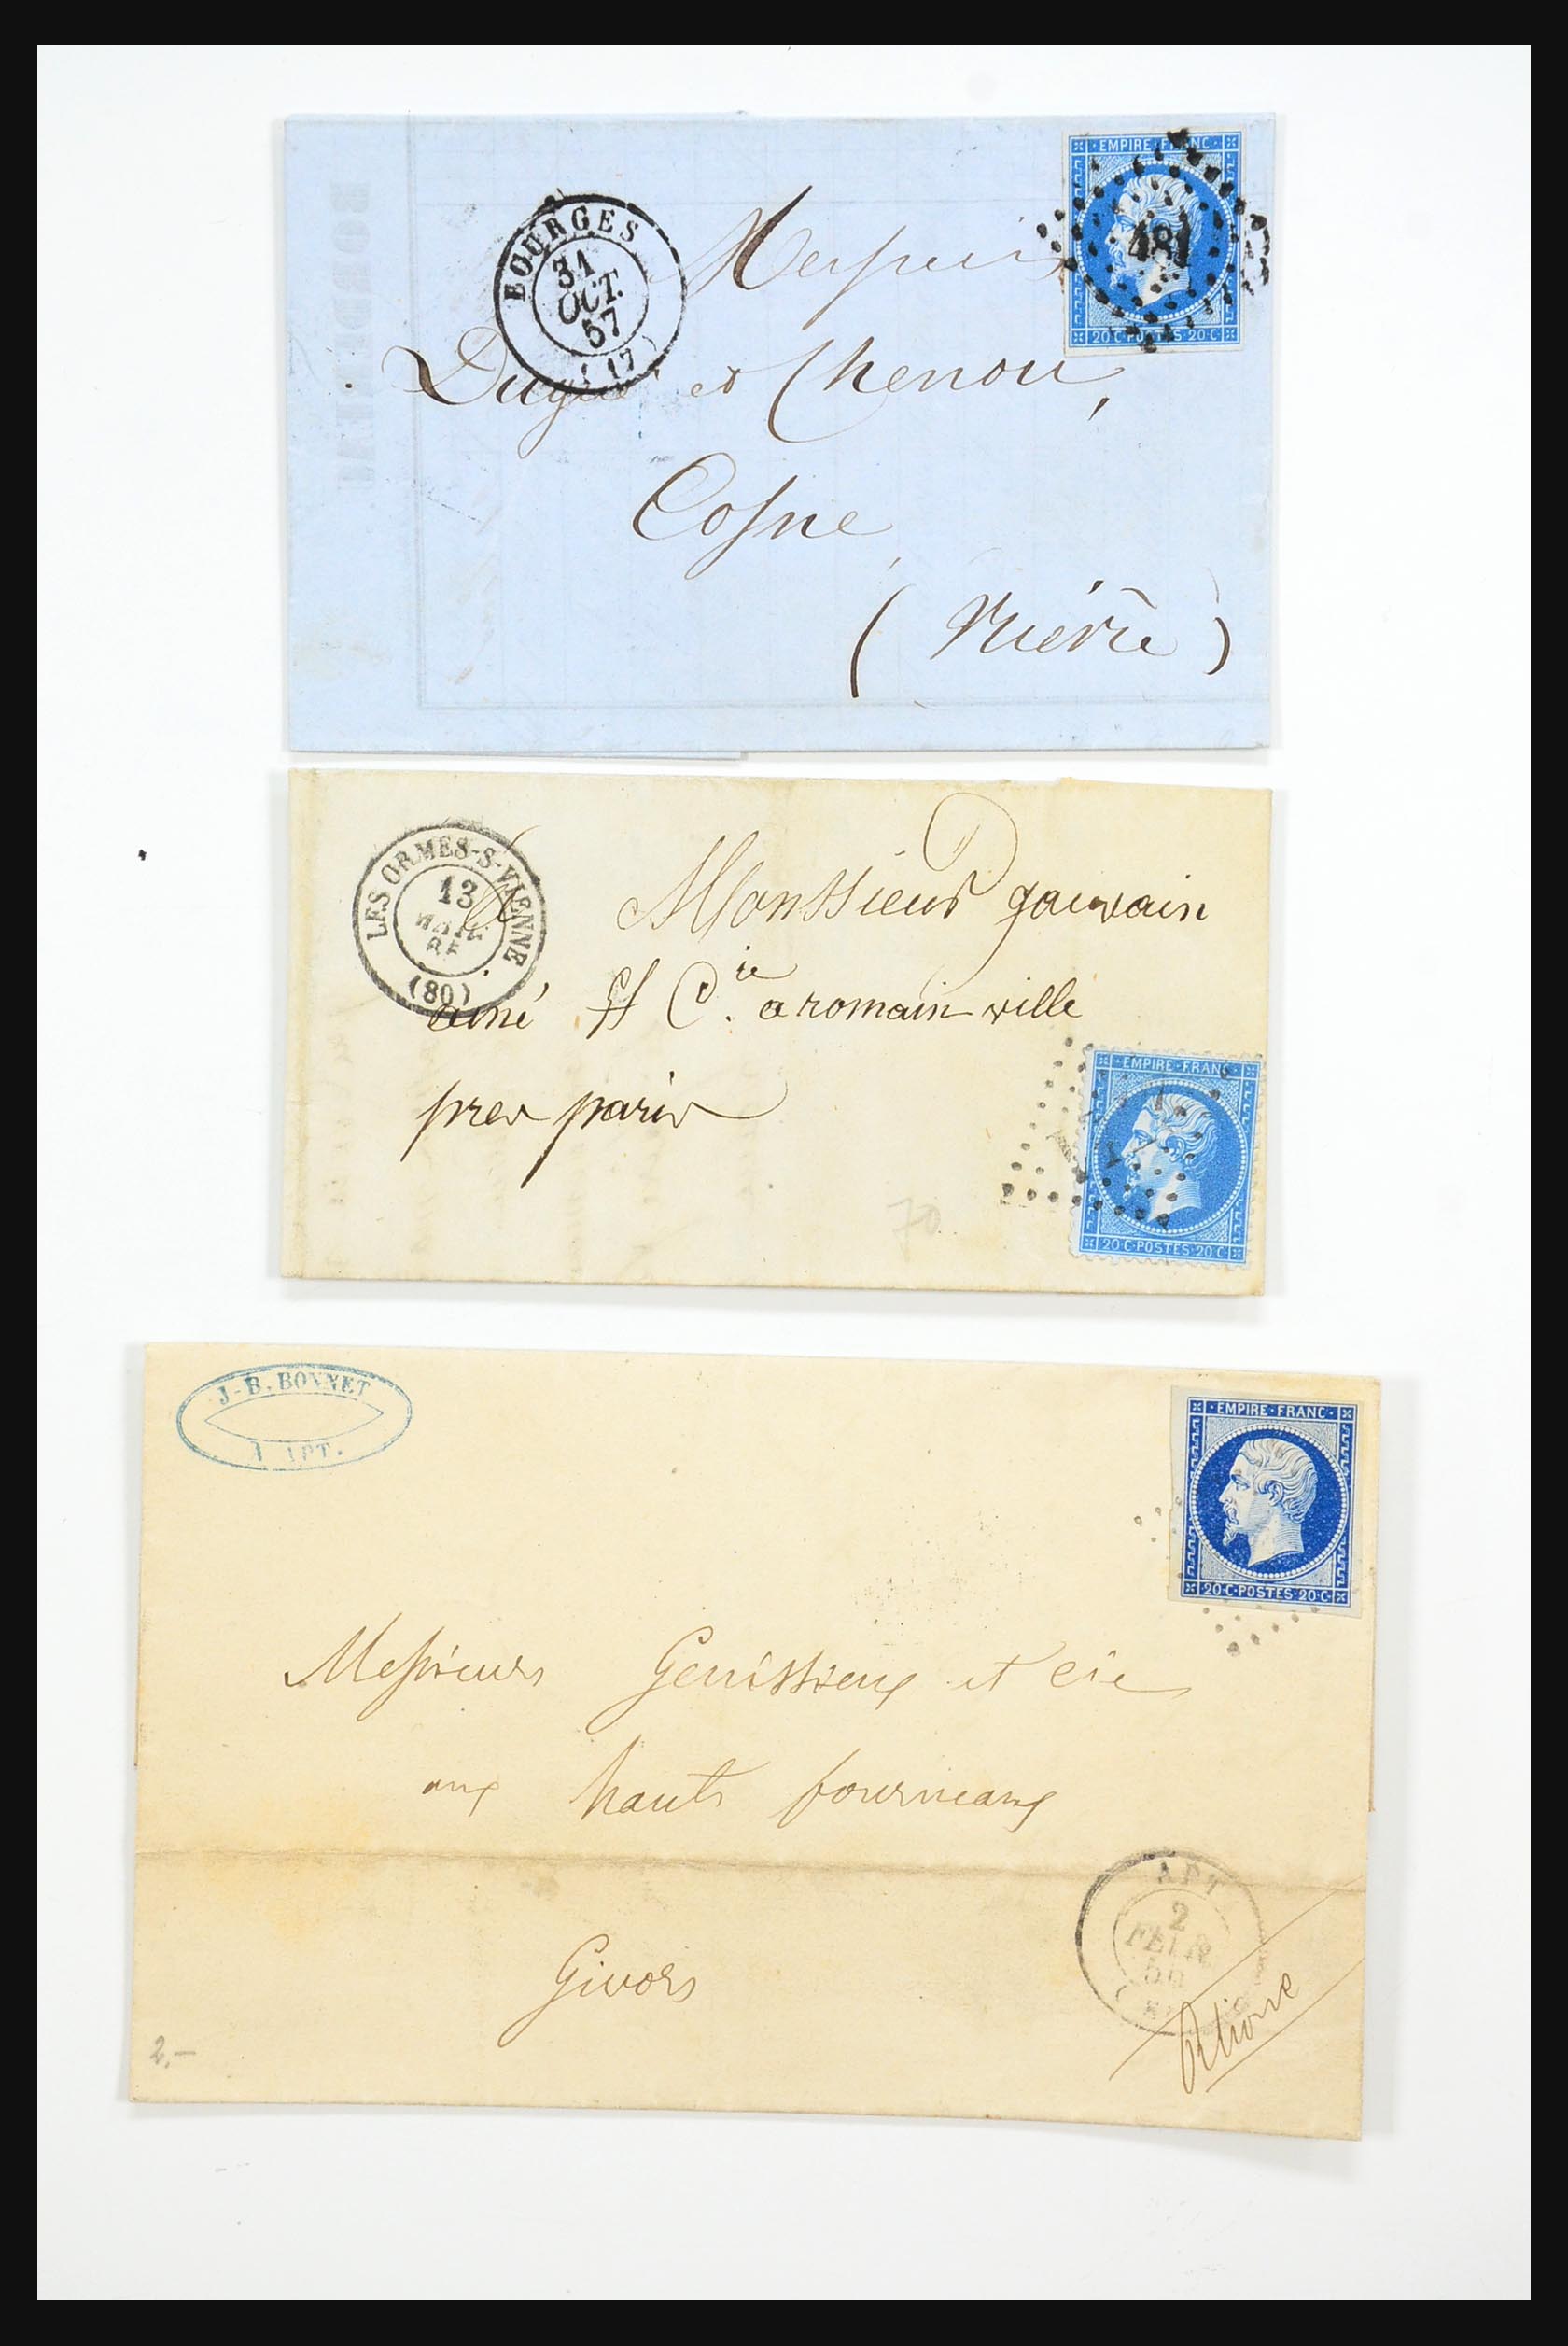 BOURGES
31
OCT.
57
(17)
EMPIRE FRANC
481
20 C POSTES 20 C
Messieurs
Dugué et Chenou,
Cosne
(Nièvre)
LES ORMES-S-VIENNE
13
(80)
à Monssieur gauvain
ainé et Cie. a romain ville
pres paris
EMPIRE FRANC
20 C POSTES 20 C
70
J-B. BONNET
À APT.
EMPIRE FRANC
20 C POSTES 20 C
Messieurs Genissieux et cie
aux hauts fourneaux
Givors
APT
2
FEVR
Rhône
2.-